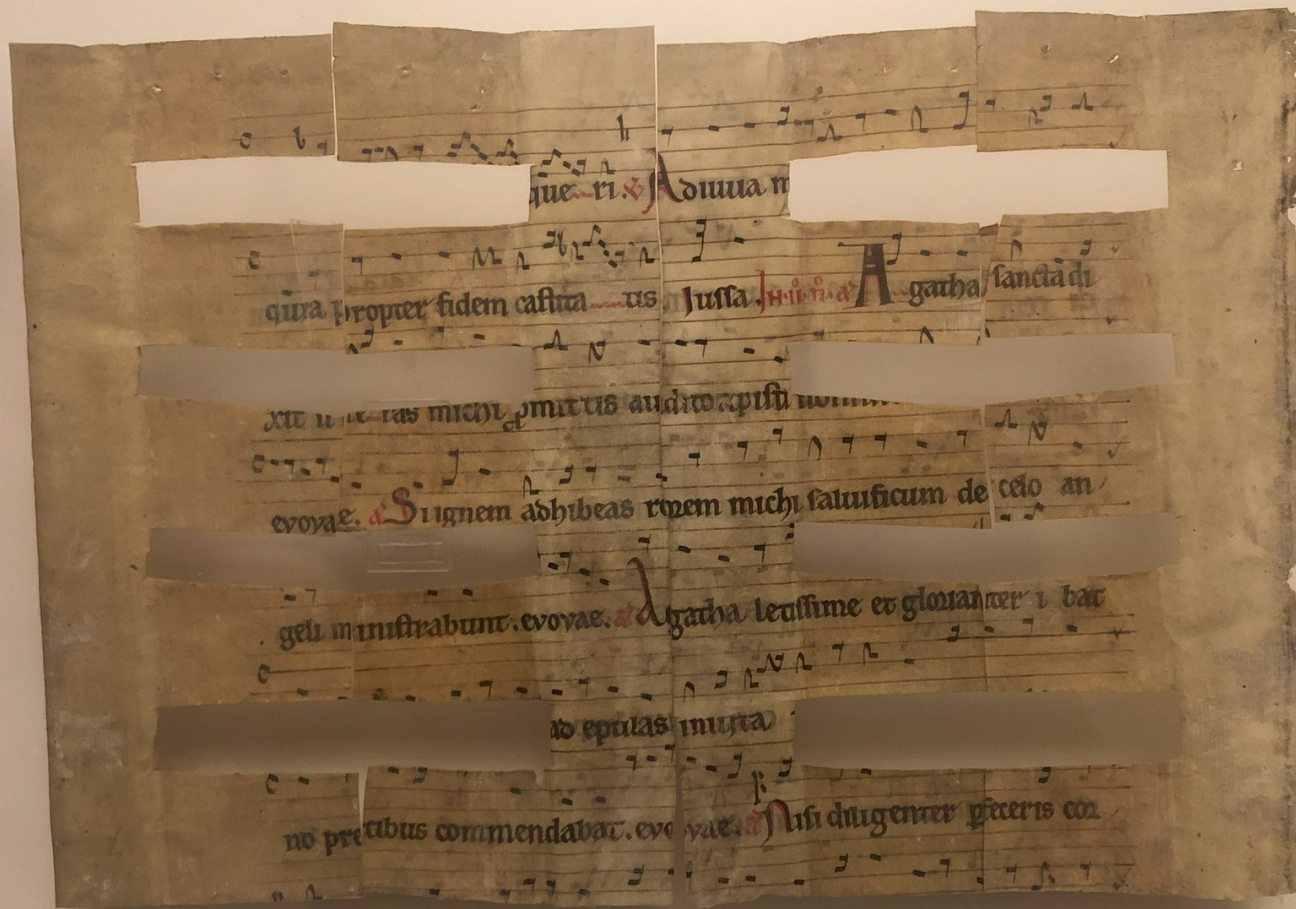 que ri. Adiuua m
qura propter fidem castita tis Jussa. Agatha sancta di
michi auditor
evovae. a Si ignem adhibeas rorem michi saluificum de celo an
geli ministrabunt. evovae. a Agatha letissime et glorianter i bat
ad epulas inuita
no precibus commendabat. evovae. a Nisi diligenter pfeceris cor